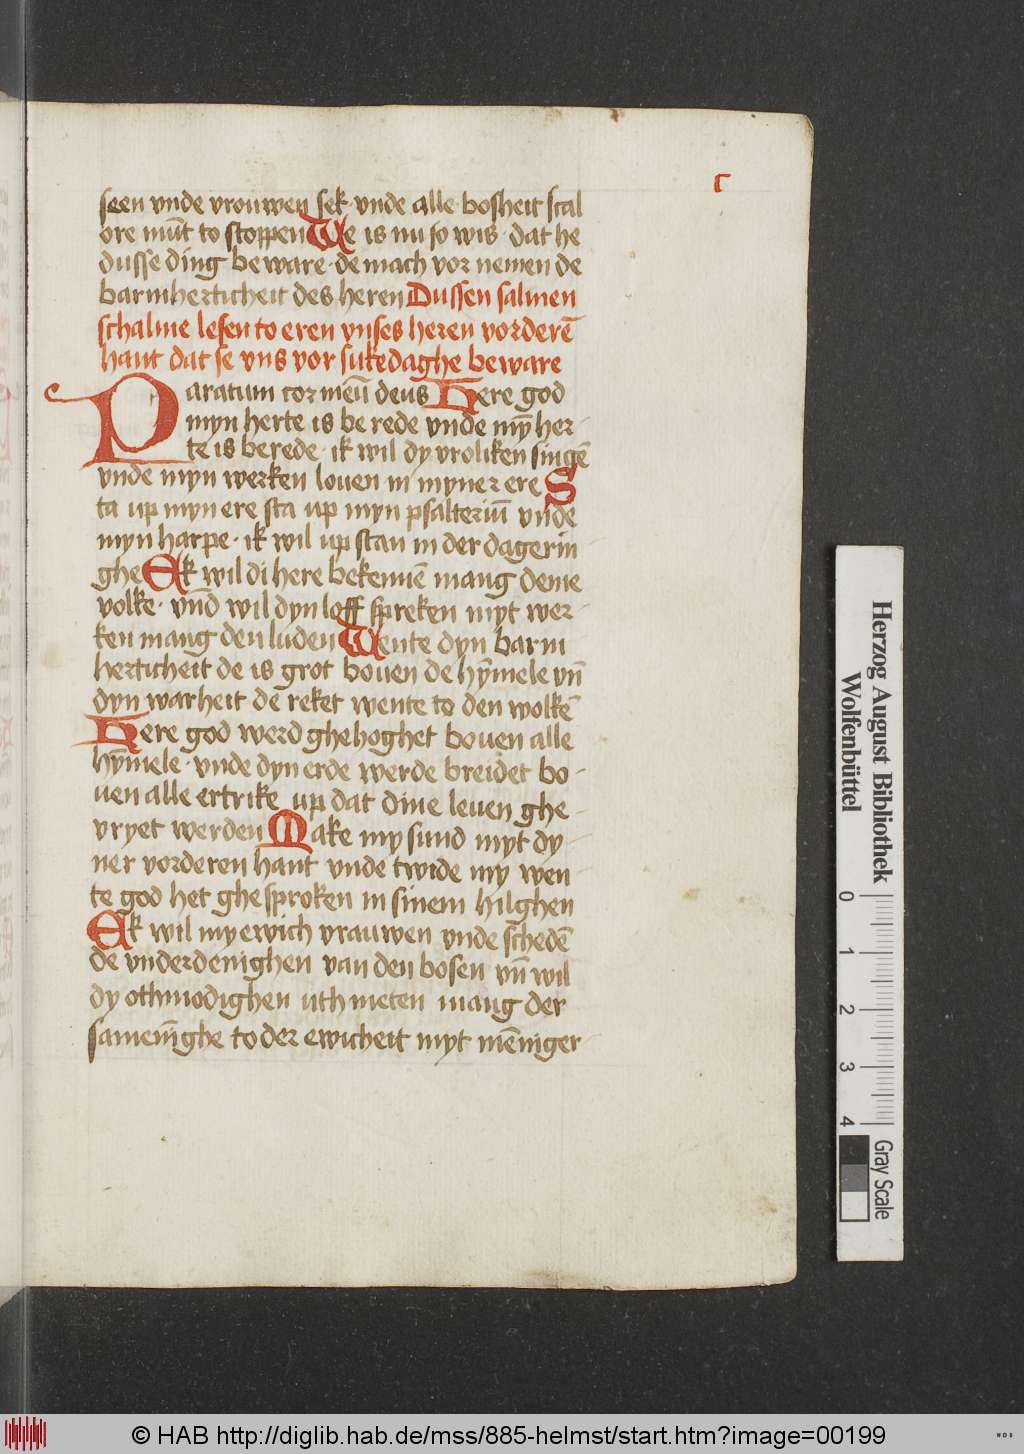 c
seen vnde vrouwen sek · vnde alle bosheit scal
ore mūt to stoppen We is nu so wis · dat he
dusse ding beware · de mach vor nemen de
barmherticheit des heren Dussen salmen
schalme lesen to eren vnses heren vorderē
hant dat se vns vor sukedaghe beware
Paratum cor meū deus Here god
myn herte is be rede vnde mȳ her-
te is berede · ik wil dy vroliken singē
vnde myn werken louen in myner ere S
ta up myn ere sta up myn psalteriū vnde
myn harpe · ik wil up stan in der dagerin
ghe Ek wil di here bekennē mang deme
volke · vn̄d wil dyn loff spreken myt wer-
ken mang den luden Wente dyn barm
herticheit de is grot bouen de hȳmele vn̄
dyn warheit de reket wente to den wolkē
Here god werd ghehoghet bouen alle
hȳmele · vnde dyn erde werde breidet bo-
uen alle ertrike up dat dine leuen ghe-
vryet werden Make my sund myt dy-
ner vorderen hant vnde twide my wen-
te god het ghesproken in sinem hilghen
Ek wil my ewich vrauwen vnde schedē
de vnderdenighen van den bosen vn̄ wil
dy othmodighen uth meten mang der
samenīghe to der ewicheit myt mēniger-
Herzog August Bibliothek
Wolfenbüttel
0 1 2 3 4
Gray Scale
© HAB http://diglib.hab.de/mss/885-helmst/start.htm?image=00199
WDB